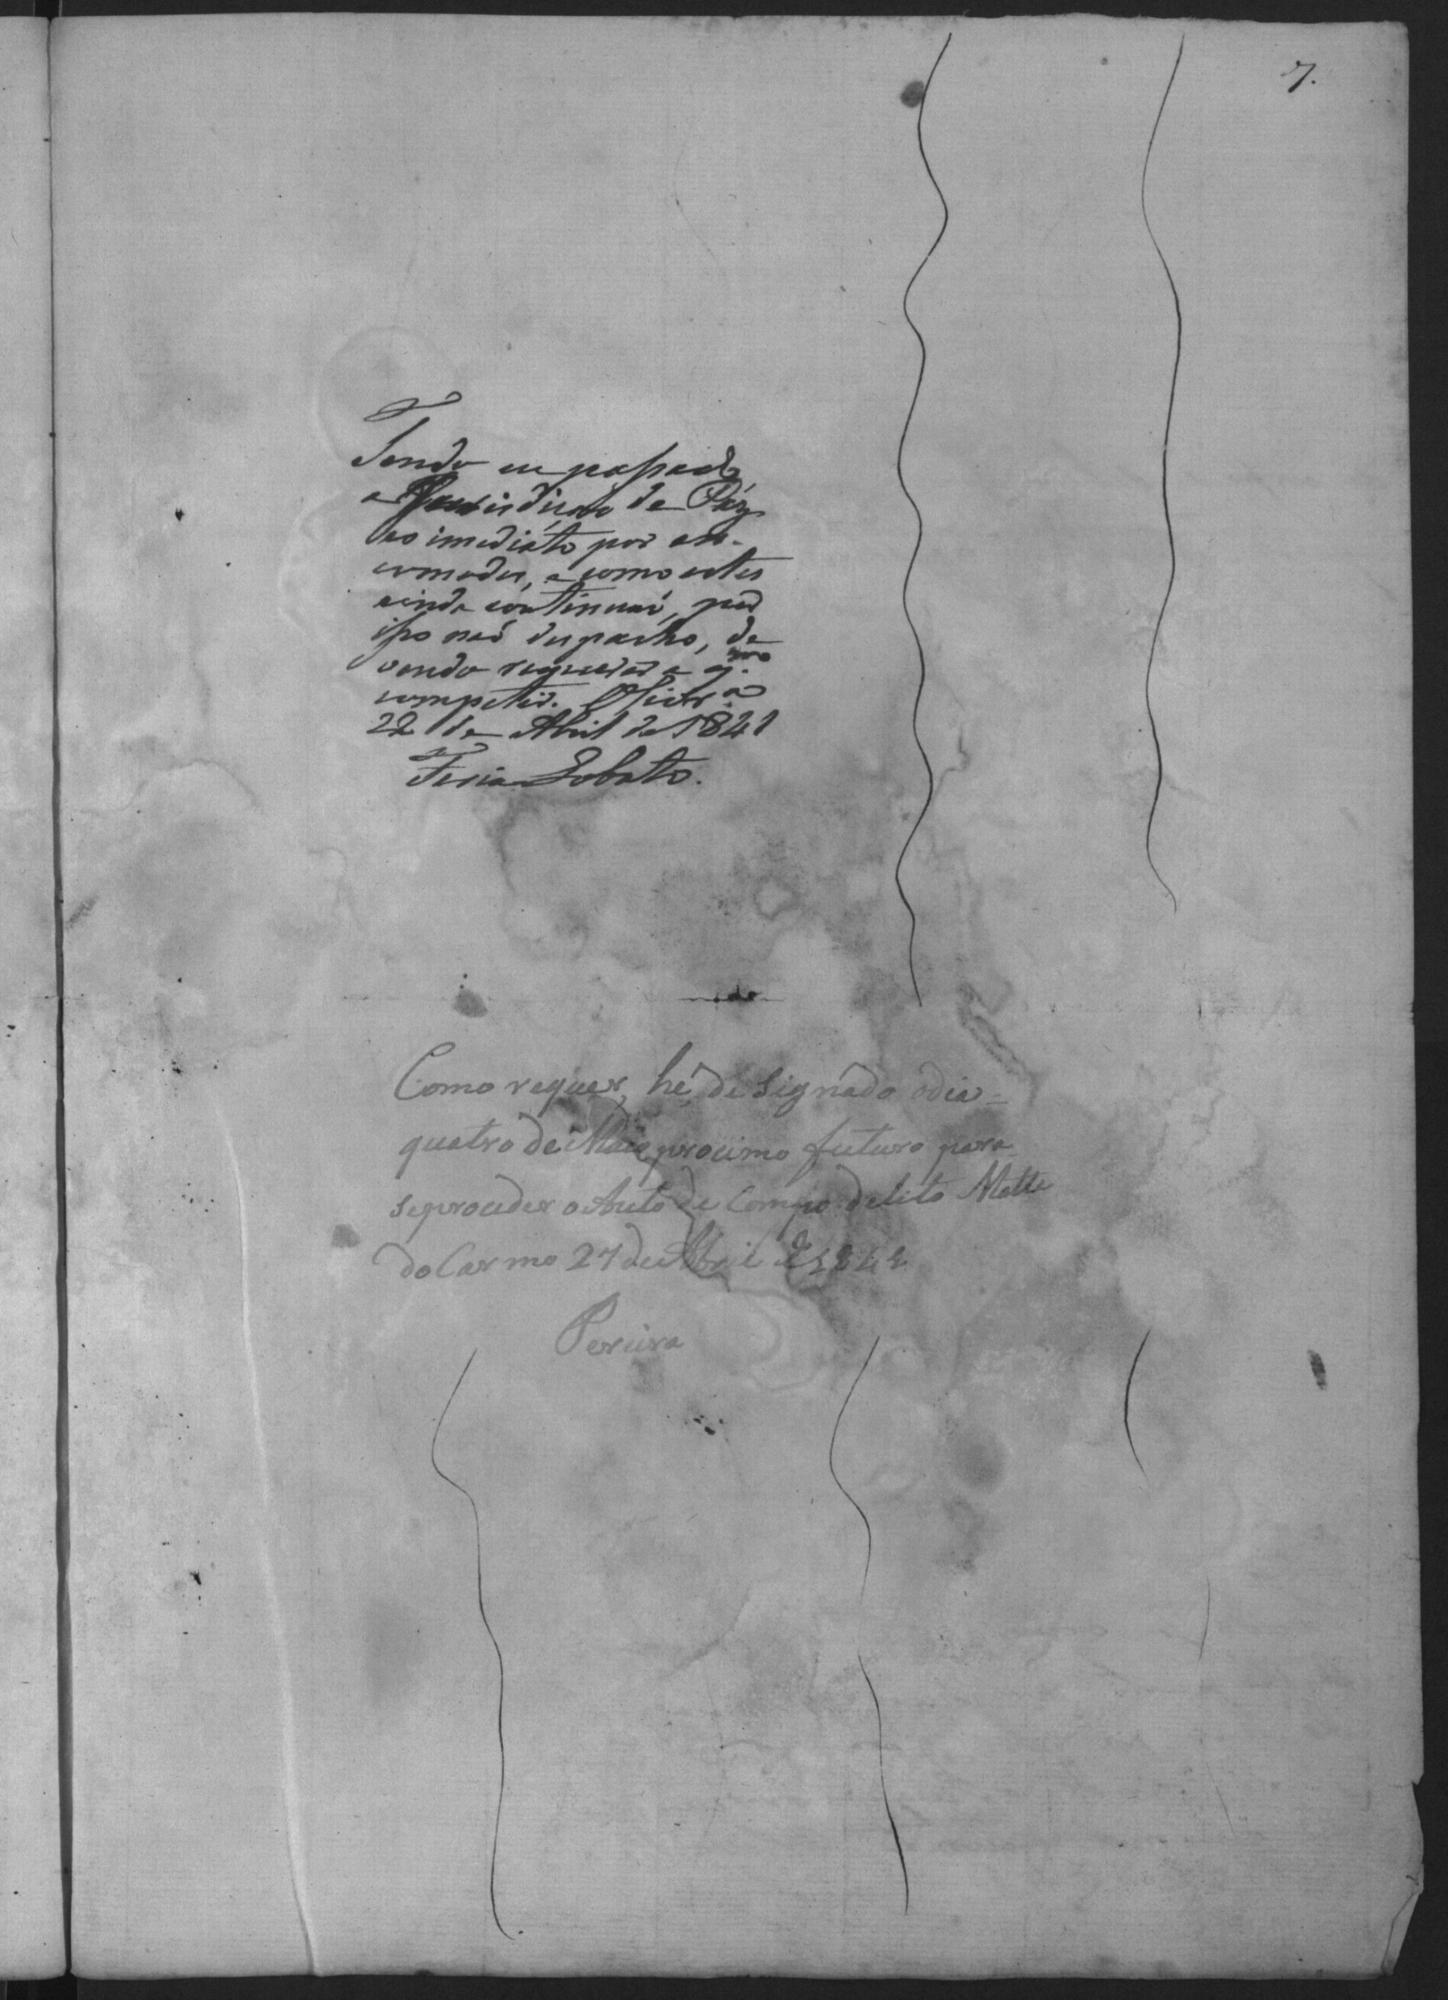 7.
Tendo eu passado
a Jurisdicaõ de Páz
ao imediáto por en-
comodos, e como estes
ainda continuaõ, por
isso naõ despacho, de
vendo requerer a q.m
competir. Olivr.a
22 de Abril de 1841
Feria Lobato.
Como requer, hé de signádo odia =
quatro de Maio procimo futuro para
seproceder oAuto de Corpo delito Matta
do Carmo 27 de Abril de 1841
Pereira